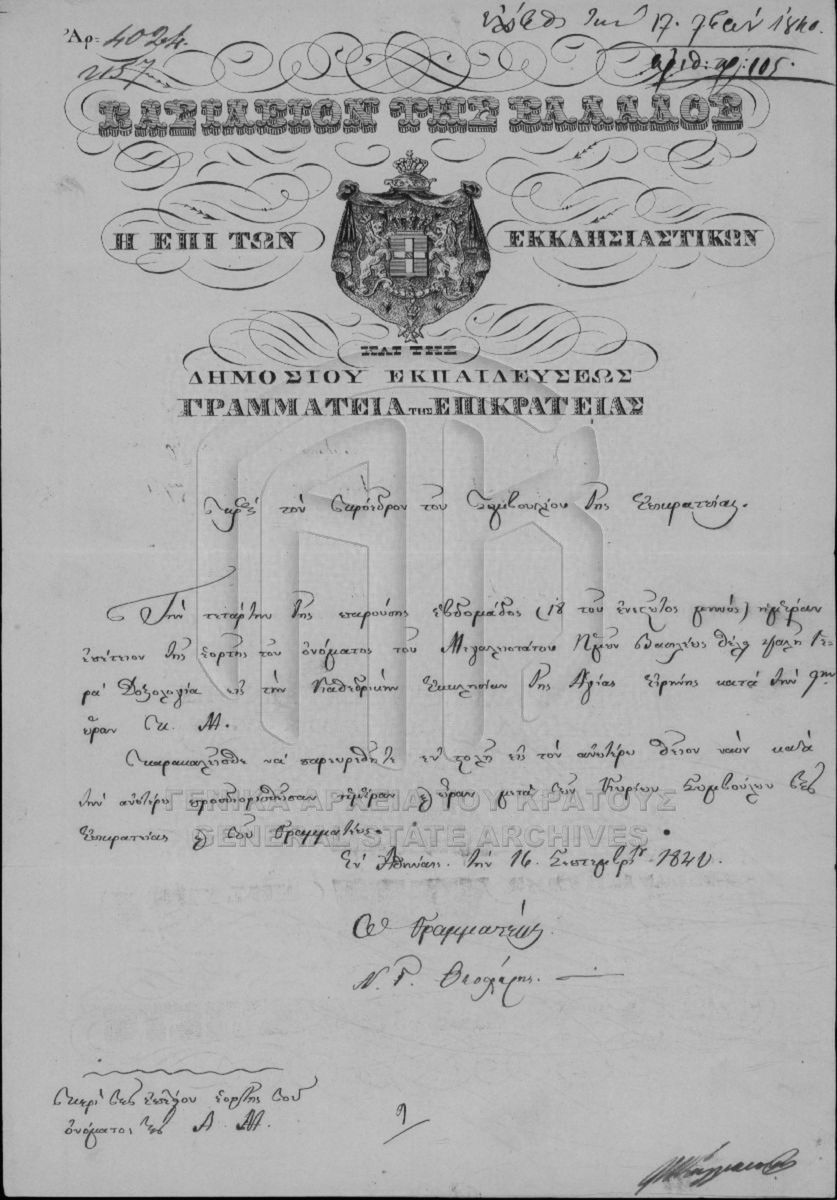 Ἀρ. 4024.
2137
ἐλήφθη τὴν 17. 7βρίου 1840.
ἀριθ: πρ: 105.
ΒΑΣΙΛΕΙΟΝ ΤΗΣ ΕΛΛΑΔΟΣ
Η ΕΠΙ ΤΩΝ ΕΚΚΛΗΣΙΑΣΤΙΚΩΝ
ΚΑΙ ΤΗΣ
ΔΗΜΟΣΙΟΥ ΕΚΠΑΙΔΕΥΣΕΩΣ
ΓΡΑΜΜΑΤΕΙΑ ΤΗΣ ΕΠΙΚΡΑΤΕΙΑΣ
Πρὸς τὸν Πρόεδρον τοῦ Συμβουλίου τῆς Ἐπικρατείας.
Τὴν τετάρτην τῆς παρούσης ἑβδομάδος (18 τοῦ ἐνεστῶτος μηνὸς) ἡμέραν
ἐπέτειον τῆς ἑορτῆς τοῦ ὀνόματος τοῦ Μεγαλειοτάτου Ἡμῶν Βασιλέως θέλει ψαλῆ Ἱε-
ρὰ Δοξολογία εἰς τὴν Καθεδρικὴν Ἐκκλησίαν τῆς Ἁγίας Εἰρήνης κατὰ τὴν 9ην
ὥραν Π. Μ.
Παρακαλεῖσθε νὰ παρευρεθῆτε ἐν στολῇ εἰς τὸν ἀνωτέρω θεῖον ναὸν κατὰ
τὴν ἀνωτέρω προσδιορισθεῖσαν ἡμέραν καὶ ὥραν μετὰ τῶν Κυρίων Συμβούλων τῆς
Ἐπικρατείας καὶ τοῦ Γραμματέως.
ΓΕΝΙΚΑ ΑΡΧΕΙΑ ΤΟΥ ΚΡΑΤΟΥΣ
GENERAL STATE ARCHIVES
Ἐν Ἀθήναις τὴν 16. Σεπτεμβρίου 1840.
Ὁ Γραμματεύς
Ν. Γ. Θεοχάρης.
Περὶ τῆς ἐπετείου ἑορτῆς τοῦ
ὀνόματος τῆς Α. Μ.